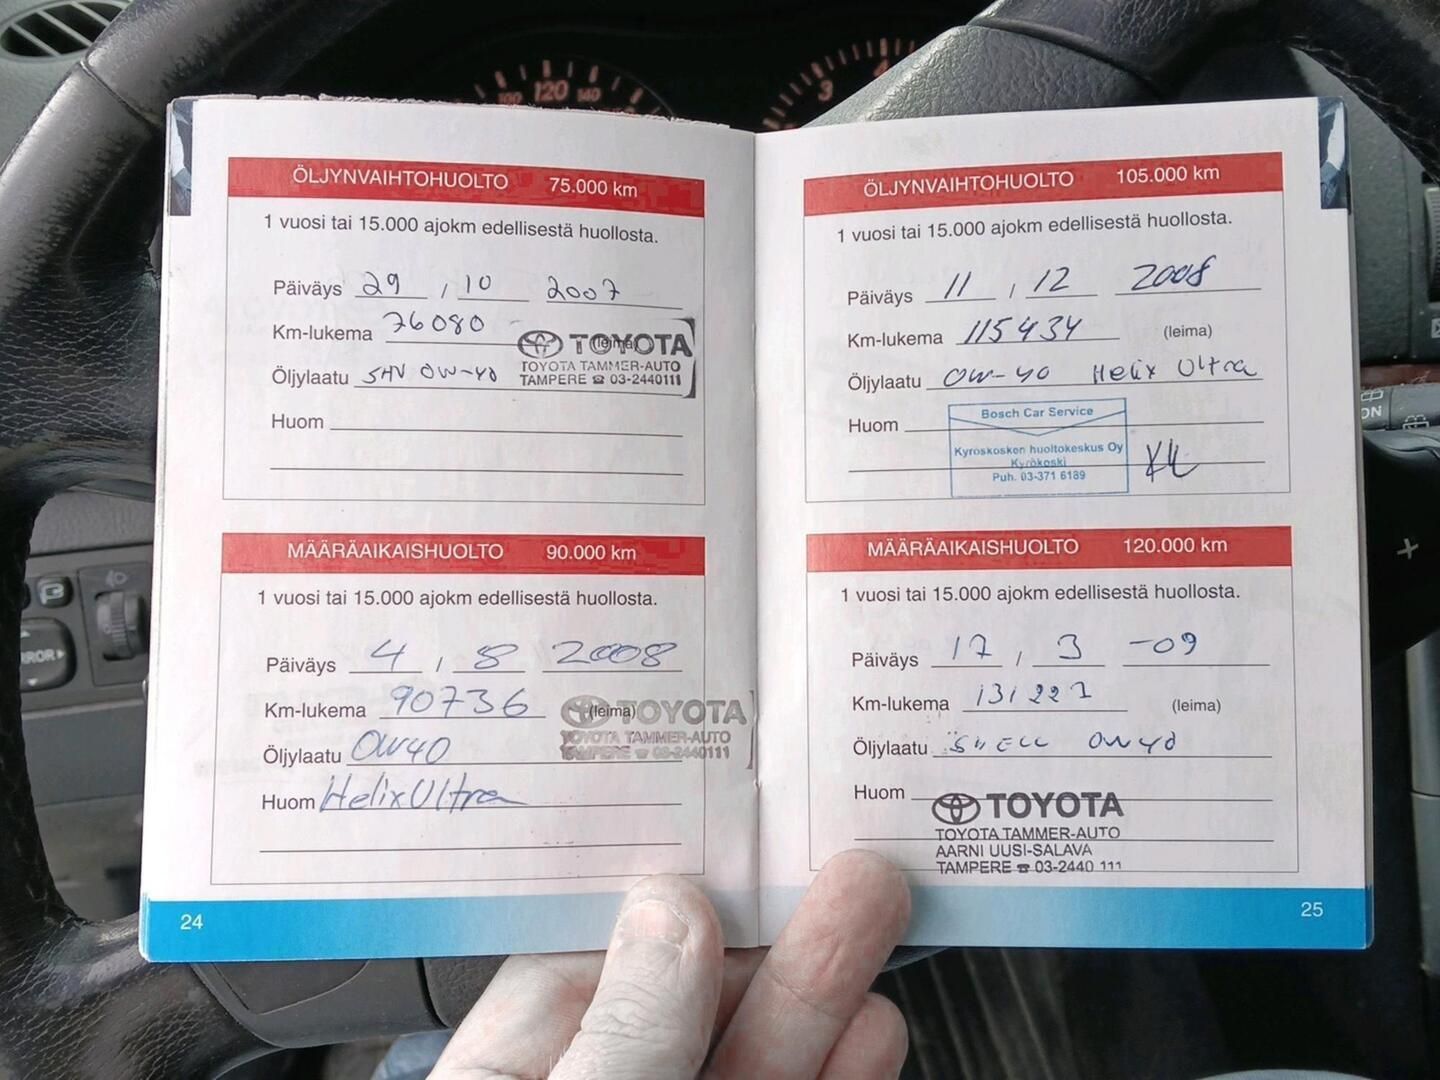 120
3
ÖLJYNVAIHTOHUOLTO 75.000 km
1 vuosi tai 15.000 ajokm edellisestä huollosta.
Päiväys 29 , 10 2007
Km-lukema 76080 (leima)
Öljylaatu SHV 0W-40
TOYOTA
TOYOTA TAMMER-AUTO
TAMPERE ☎ 03-2440111
Huom
MÄÄRÄAIKAISHUOLTO 90.000 km
1 vuosi tai 15.000 ajokm edellisestä huollosta.
Päiväys 4 , 8 2008
Km-lukema 90736 (leima)
Öljylaatu 0W40
TOYOTA
TOYOTA TAMMER-AUTO
TAMPERE ☎ 03-2440111
Huom Helix Ultra
24
ÖLJYNVAIHTOHUOLTO 105.000 km
1 vuosi tai 15.000 ajokm edellisestä huollosta.
Päiväys 11 , 12 2008
Km-lukema 115434 (leima)
Öljylaatu 0W-40 Helix Ultra
Huom
Bosch Car Service
Kyröskosken huoltokeskus Oy
Kyrökoski
Puh. 03-371 6189
MÄÄRÄAIKAISHUOLTO 120.000 km
1 vuosi tai 15.000 ajokm edellisestä huollosta.
Päiväys 17 , 3 -09
Km-lukema 131227 (leima)
Öljylaatu SHELL 0W40
Huom
TOYOTA
TOYOTA TAMMER-AUTO
AARNI UUSI-SALAVA
TAMPERE ☎ 03-2440 111
25
ON